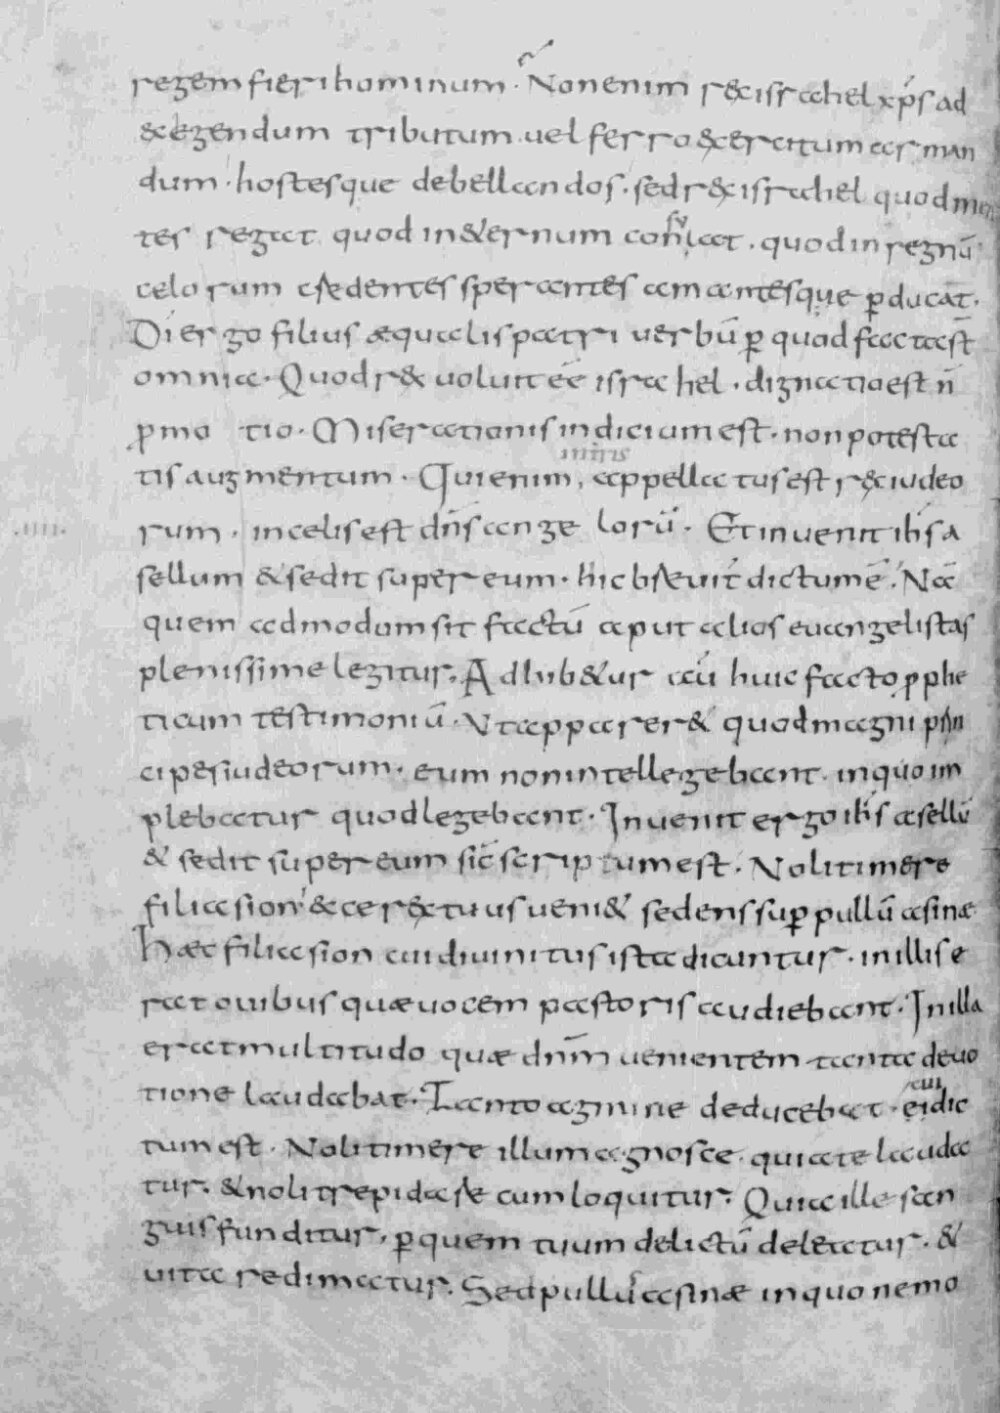 regem fieri hominum. Non enim rex israhel xp̄s ad
exegendum tributum. uel ferro exercitum arman
dum. hostesque debellandos. sed rex israhel quod men
tes regat quod in &ernum consulat. quod in regnū
celorum credentes sperantes amantesque ꝑducat.
Di ergo filius æqualis patri uerbū ꝑ quod facta est̄
omnia. Quod rex uoluit eē israhel. dignatio est n̄
ꝓmotio. Miserationis indicium est. non potesta
tis augmentum. Qui enim appellatus est rex iudeo
rum. in celis est dn̄s angelorū. Et inuenit ih̄s a
sellum & sedit super eum. hic breuit̄ dictum ē. Nā
quem admodum sit factū aput alios euangelistas
plenissime legitur. Adhib&ur aū huic facto ꝓphe
ticum testimoniū. Vt appareret & quod magni prin
cipes iudeorum. eum non intellegebant. in quo im
plebatur quod legebant. Inuenit ergo ih̄s asellū
& sedit super eum sic̄ scriptum est. Noli timere
filia sion. ecce rex tuus ueni& sedens suꝑ pullū asinæ
Hæc filia sion cui diuinitus ista dicuntur. in illis e
rat ouibus quæ uocem pastoris audiebant. In illa
erat multitudo quæ dn̄m uenientem tanta deuo
tione laudabat. Tanto agmine deducebat. ei dic
cui
tum est. Noli timere illum agnosce. qui a te lauda
tur. & noli trepidare cum loquitur. Quia ille san
guis funditur. ꝑ quem tuum delictū deleatur. &
uita redimatur. Sed pullū asinæ in quo nemo
.IIII.